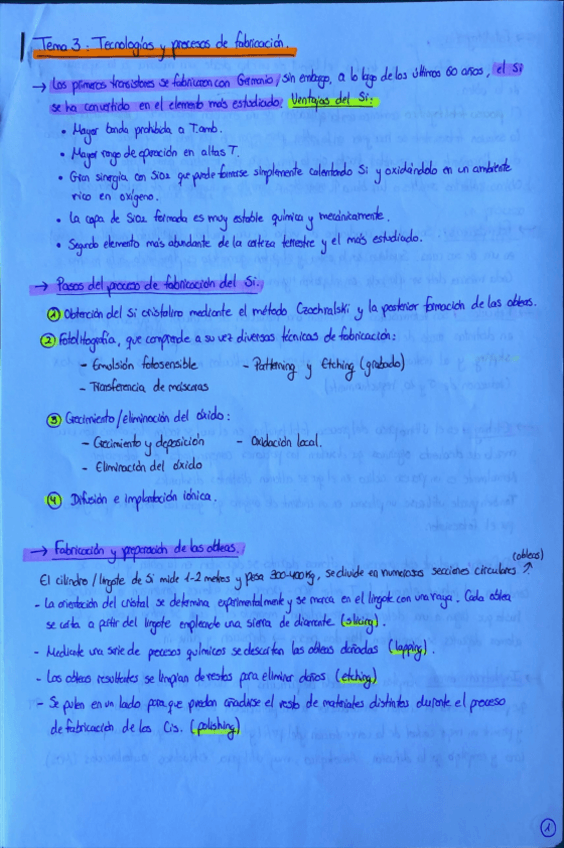 Tema 3: Tecnologías y procesos de fabricación.
→ Los primeros transistores se fabricaron con Germanio, sin embargo, a lo lago de los últimos 60 años, el Si
se ha convertido en el elemento más estudiado. Ventajas del Si:
• Mayor banda prohibida a Tamb.
• Mayor rango de operación en altas T.
• Gran sinergia con SiO2 que puede formarse simplemente calentando Si y oxidándolo en un ambiente
rico en oxígeno.
• La capa de SiO2 formada es muy estable química y mecánicamente.
• Segundo elemento más abundante de la corteza terrestre y el más estudiado.
→ Pasos del proceso de fabricación del Si.
1 Obtención del Si cristalino mediante el método Czochralski y la posterior formación de las obleas.
2 Fotolitografía, que comprende a su vez diversas técnicas de fabricación:
- Emulsión fotosensible - Patterning y Etching (grabado)
- Transferencia de máscaras
3 Crecimiento/eliminación del óxido:
- Crecimiento y deposición - Oxidación local.
- Eliminación del óxido
4 Difusión e implantación iónica.
→ Fabricación y preparación de las obleas.
(obleas)
El cilindro/lingote de Si mide 1-2 metros y pesa 300-400Kg, se divide en numerosas secciones circulares ↗
- La orientación del cristal se determina experimentalmente y se marca en el lingote con una raya. Cada oblea
se corta a partir del lingote empleando una sierra de diamante (slicing).
- Mediante una serie de procesos químicos se descartan las obleas dañadas (lapping).
- Las obleas resultantes se limpian de restos para eliminar daños (etching).
- Se pulen en un lado para que puedan añadirse el resto de materiales distintos durante el proceso
de fabricación de los CIs. (polishing)
1